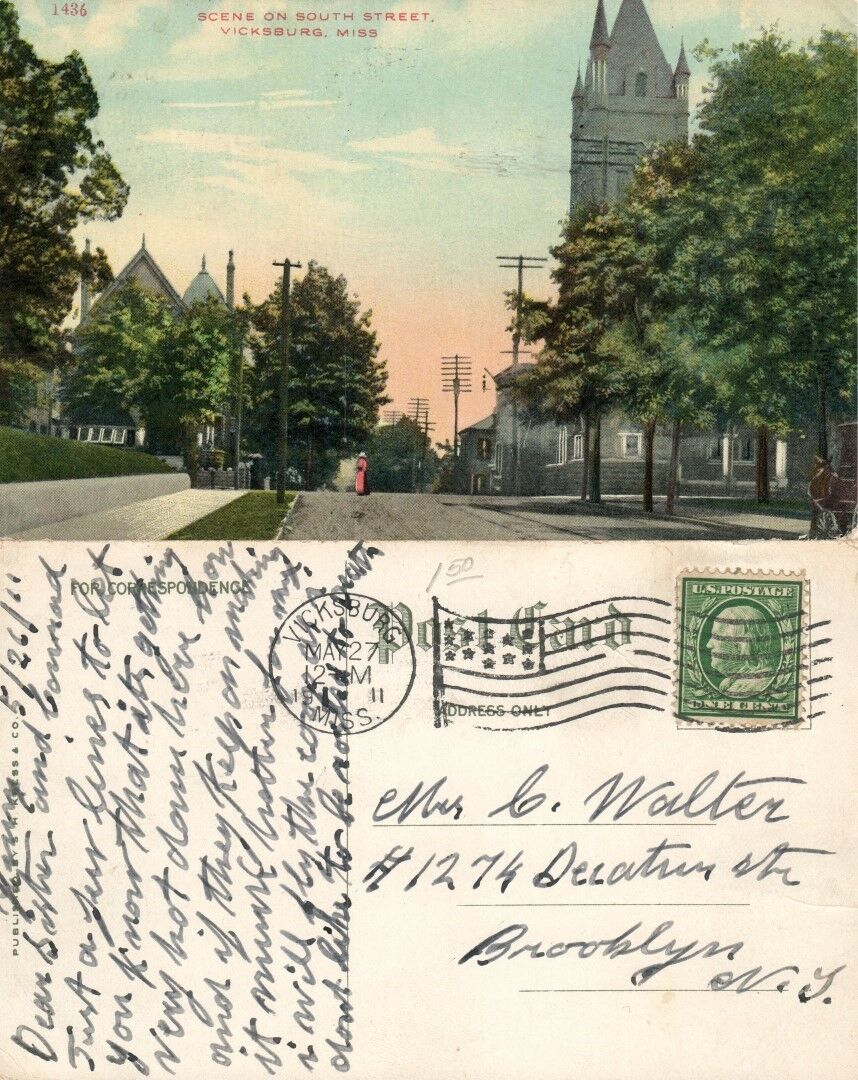 1436
SCENE ON SOUTH STREET,
VICKSBURG, MISS
FOR CORRESPONDENCE
Post Card
ADDRESS ONLY
1 50
VICKSBURG
MAY 27
12 M
1911
MISS.
U.S. POSTAGE
ONE CENT
PUBLISHED BY S. H. KRESS & CO.
5/26/11
Dear Sister and Conrad
Just a few lines to let
you know that its getting
very hot down here now
and if they keep on making
it much hotter
i will fly the
dont like to be
Mrs C. Walter
#1274 Decatur str
Brooklyn
N.Y.